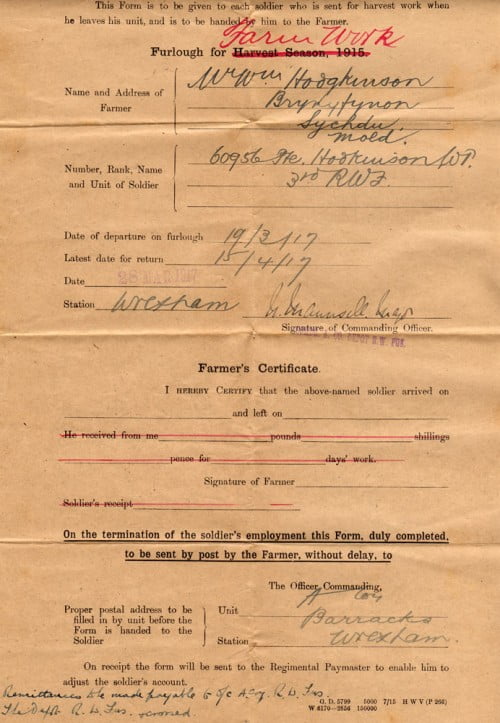 This Form is to be given to each soldier who is sent for harvest work when
he leaves his unit, and is to be handed by him to the Farmer.
Farm Work
Furlough for Harvest Season, 1915.
Name and Address of
Farmer
Mr Wm Hodgkinson
Bryn
Sychdu,
Mold.
Number, Rank, Name
and Unit of Soldier
60956 Pte. Hodkinson W.P.
3rd RWF.
Date of departure on furlough 19/3/17
Latest date for return 15/4/17
Date
Station Wrexham
Signature of Commanding Officer.
Farmer's Certificate.
I HEREBY CERTIFY that the above-named soldier arrived on
and left on
He received from me pounds shillings
pence for days' work.
Signature of Farmer
Soldier's receipt
On the termination of the soldier's employment this Form, duly completed,
to be sent by post by the Farmer, without delay, to
The Officer Commanding,
Proper postal address to be
filled in by unit before the
Form is handed to the
Soldier
Unit A Coy
Barracks
Station Wrexham.
On receipt the form will be sent to the Regimental Paymaster to enable him to
adjust the soldier's account.
Remittances to be made payable to O/C A Coy. R. W. Fus.
The Depot R. W. Fus. crossed.
G. D. 5799 5000 7/15 H W V (P 266)
W 6170—2856 150000